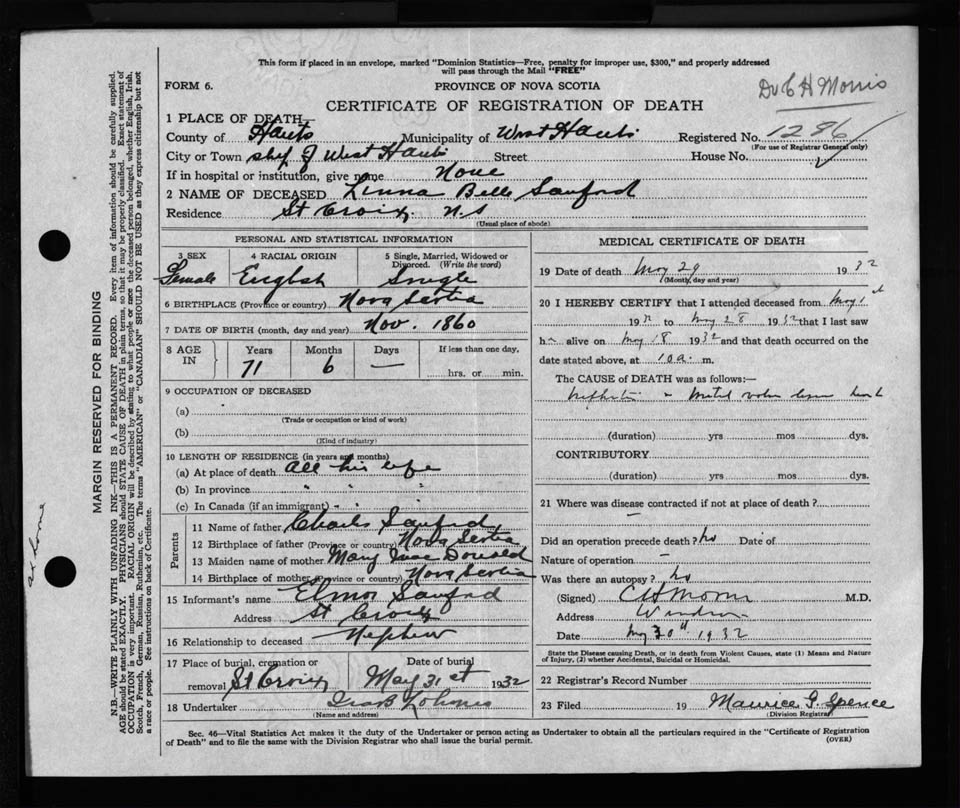 This form if placed in an envelope, marked "Dominion Statistics—Free, penalty for improper use, $300," and properly addressed
will pass through the Mail "FREE"
FORM 6.
PROVINCE OF NOVA SCOTIA
Dr C H Morris
CERTIFICATE OF REGISTRATION OF DEATH
1 PLACE OF DEATH
County of Hants Municipality of West Hants Registered No. 1286
(For use of Registrar General only)
City or Town West Hants Street House No.
If in hospital or institution, give name None
2 NAME OF DECEASED Linna Belle Sanford
Residence St Croix N.S
(Usual place of abode)
PERSONAL AND STATISTICAL INFORMATION
3 SEX 4 RACIAL ORIGIN 5 Single, Married, Widowed or
Divorced. (Write the word)
Female English Single
6 BIRTHPLACE (Province or country) Nova Scotia
7 DATE OF BIRTH (month, day and year) Nov. 1860
8 AGE IN Years Months Days If less than one day,
71 6 — hrs. or min.
9 OCCUPATION OF DECEASED
(a)
(Trade or occupation or kind of work)
(b)
(Kind of industry)
10 LENGTH OF RESIDENCE (in years and months)
(a) At place of death all his life
(b) In province " " "
(c) In Canada (if an immigrant) " "
Parents
11 Name of father Charles Sanford
12 Birthplace of father (Province or country) Nova Scotia
13 Maiden name of mother Mary Mac Donald
14 Birthplace of mother (Province or country) Nova Scotia
15 Informant's name Elmor Sanford
Address St Croix
16 Relationship to deceased Nephew
17 Place of burial, cremation or Date of burial
removal St Croix May 31st 1932
18 Undertaker
(Name and address)
MEDICAL CERTIFICATE OF DEATH
19 Date of death May 29 1932
(Month, day and year)
20 I HEREBY CERTIFY that I attended deceased from May 1st
1932 to May 28 1932 that I last saw
h alive on May 18 1932 and that death occurred on the
date stated above, at 10 a. m.
The CAUSE OF DEATH was as follows:—
Nephritis
(duration) yrs mos dys.
CONTRIBUTORY
(duration) yrs mos dys.
21 Where was disease contracted if not at place of death?
—
Did an operation precede death? no Date of
Nature of operation —
Was there an autopsy? no
(Signed) C H Morris M.D.
Address Windsor
Date May 30th 1932
State the Disease causing Death, or in death from Violent Causes, state (1) Means and Nature
of Injury, (2) whether Accidental, Suicidal or Homicidal.
22 Registrar's Record Number
23 Filed 19 Maurice G. Spence
(Division Registrar)
Sec. 46—Vital Statistics Act makes it the duty of the Undertaker or person acting as Undertaker to obtain all the particulars required in the "Certificate of Registration
of Death" and to file the same with the Division Registrar who shall issue the burial permit.
(OVER)
MARGIN RESERVED FOR BINDING
N.B.—WRITE PLAINLY WITH UNFADING INK—THIS IS A PERMANENT RECORD. Every item of information should be carefully supplied.
AGE should be stated EXACTLY. PHYSICIANS should STATE CAUSE OF DEATH in plain terms, so that it may be properly classified. Exact statement of
OCCUPATION is very important. RACIAL ORIGIN will be described by stating to what people or race the deceased person belonged, whether English, Irish,
Scotch, French, German, Russian, Ruthenian, etc. The terms "AMERICAN" or "CANADIAN" SHOULD NOT BE USED as they express citizenship but not
a race or people. See instructions on back of Certificate.
at home